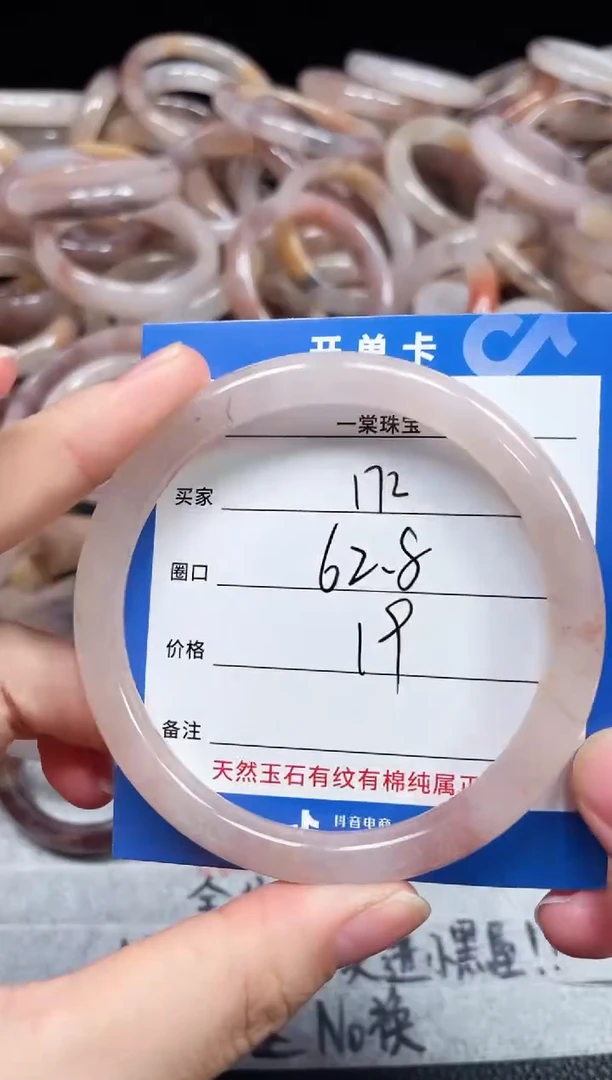 开单卡
一棠珠宝
买家 172
圈口 62.8
价格 19
备注
天然玉石有纹有棉纯属正
抖音电商
No换